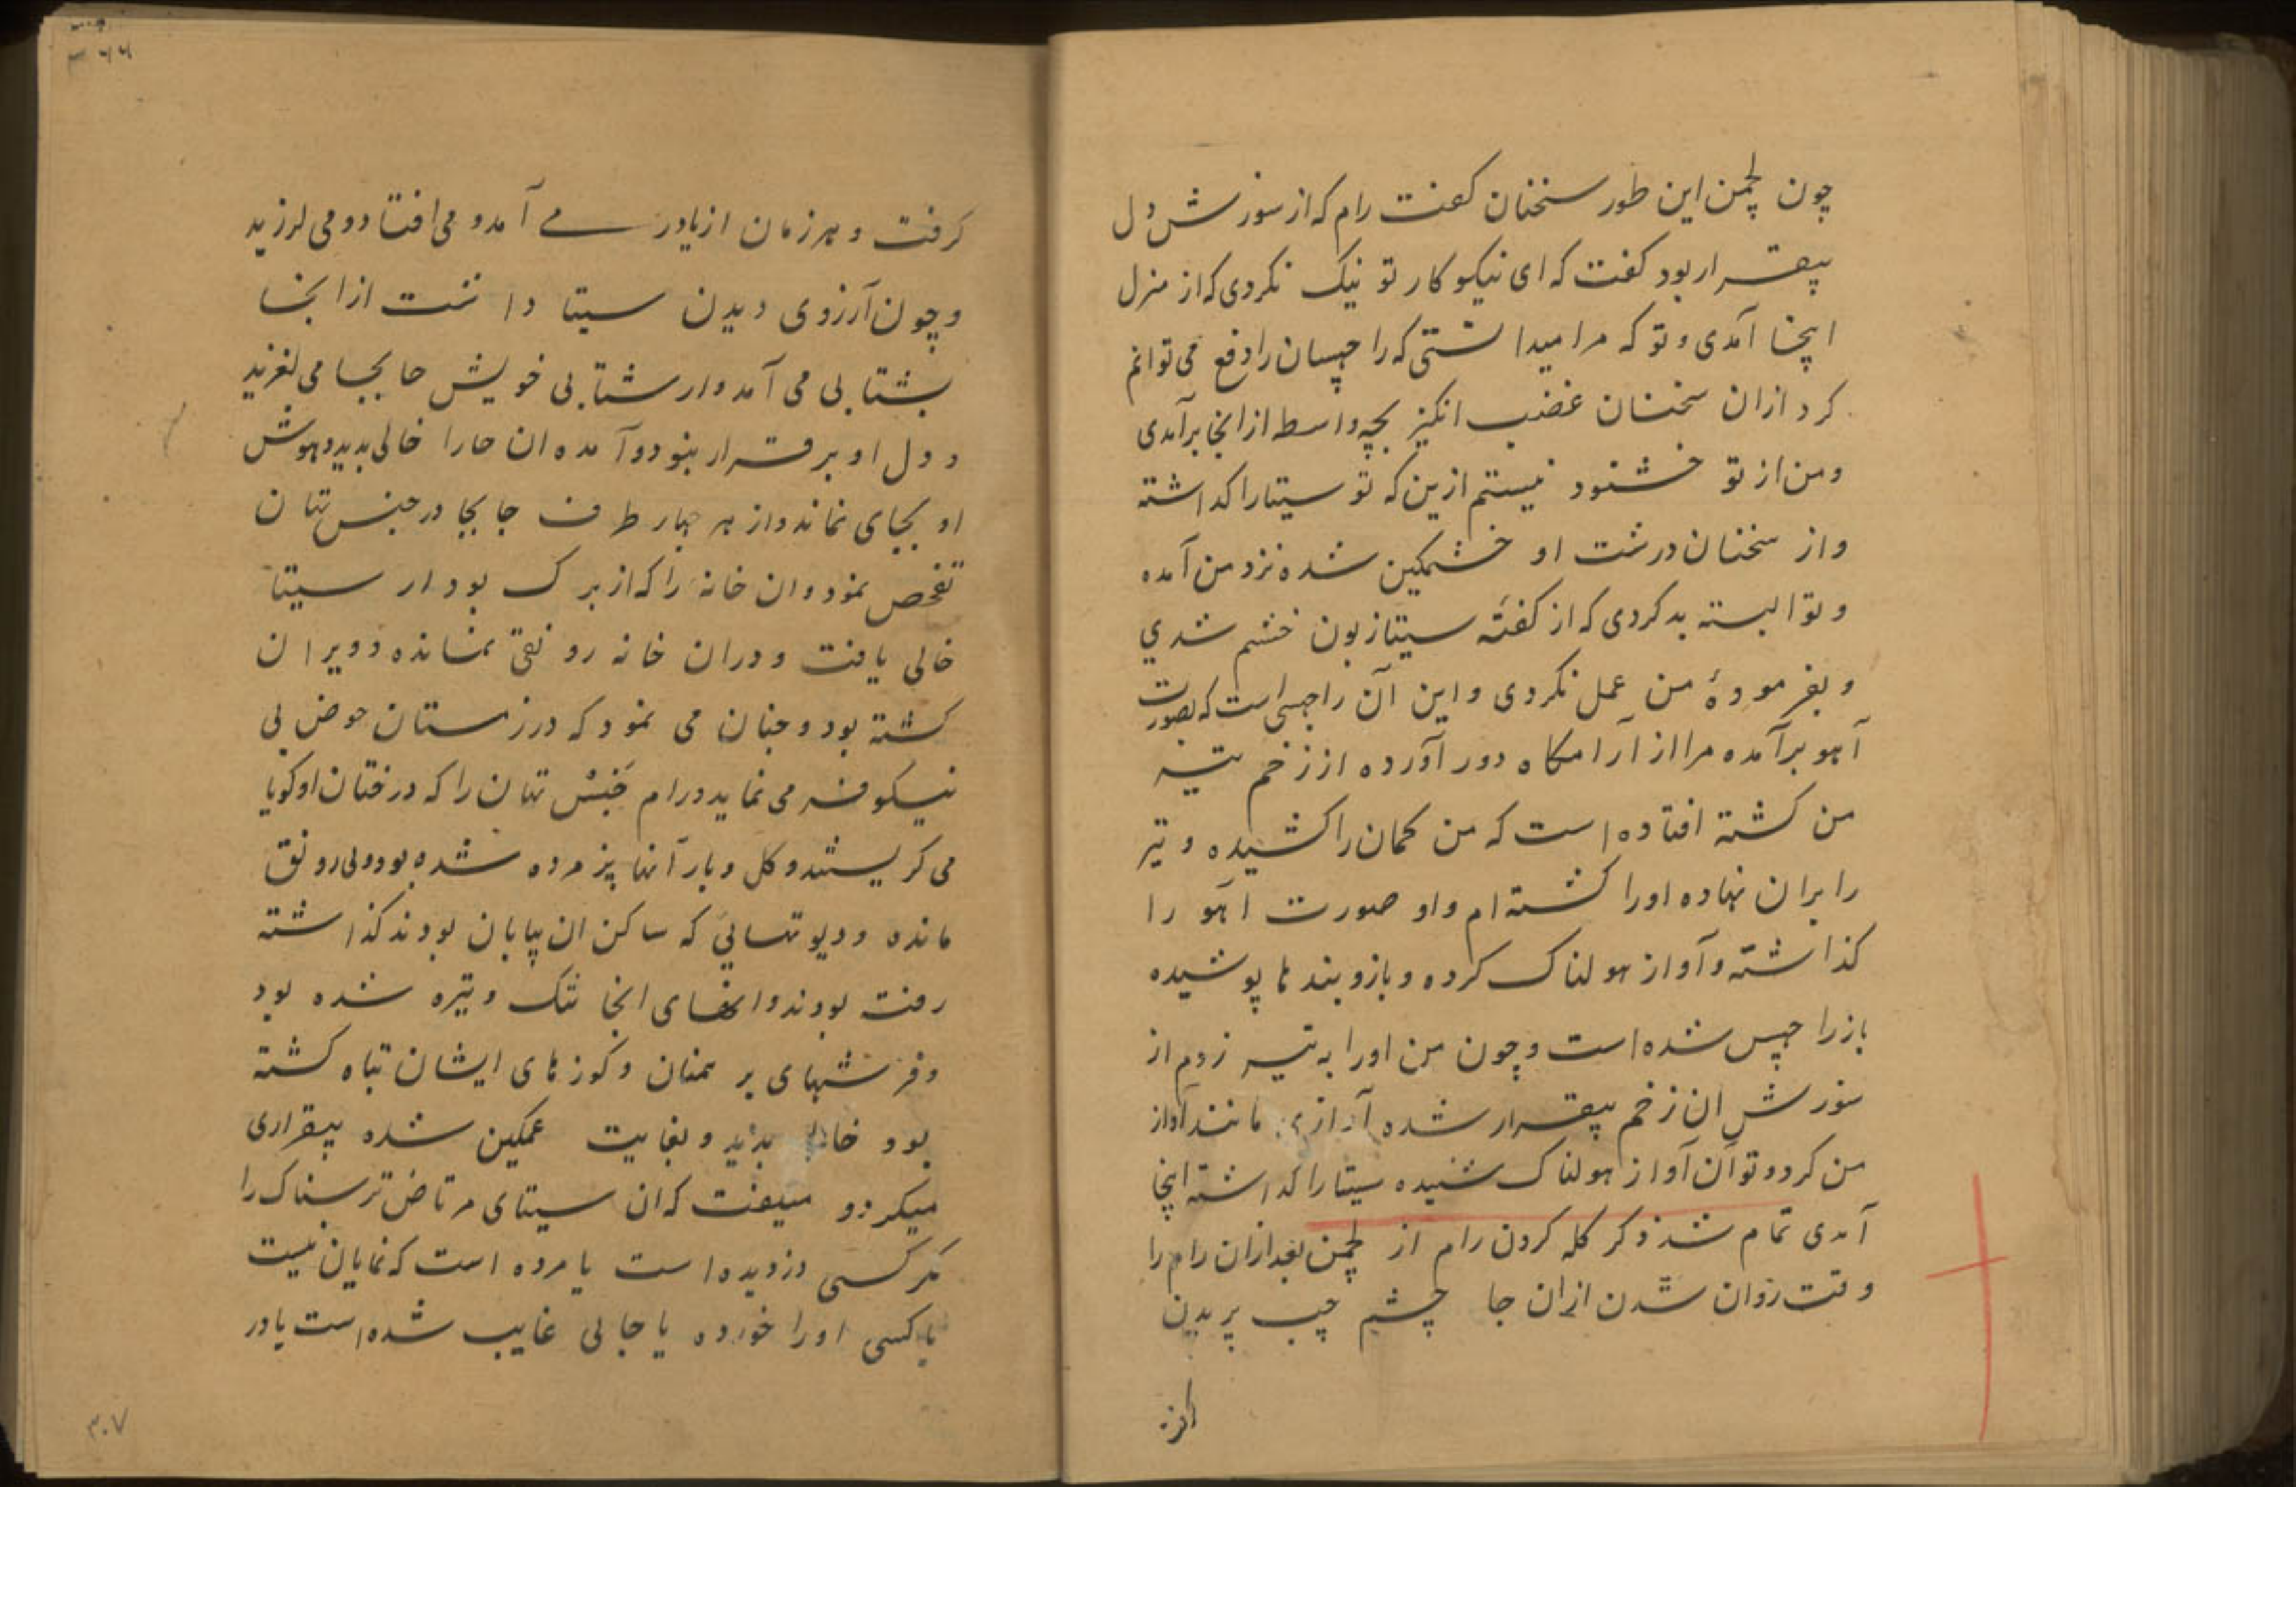 چون لچمن این طور سخنان گفت رام که از سوزش دل
بیقرار بود گفت که ای نیکو کار تو نیک نکردی که از منزل
اینجا آمدی و تو که مرا میدانستی که راچهسان را دفع می توانم
کرد ازان سخنان غضب انگیز بچه واسطه ازانجا برآمدی
و من از تو خشنود نیستم ازین که تو سیتا را گذاشته
و از سخنان درشت او خشمگین شده نزد من آمده
و تو البته بد کردی که از گفته سیتا زبون خشم شدی
و بفرمودهٔ من عمل نکردی و این آن راچهسی است که بصورت
آهو برآمده مرا از آرامگاه دور آورده از زخم تیر
من کشته افتاده است که من کمان را کشیده و تیر
را بران نهاده اورا کشته ام و او صورت اهو را
گذاشته و آواز هولناک کرده و بازوبندها پوشیده
باز راچهس شده است و چون من اورا به تیر زدم از
سوزش ان زخم بیقرار شده آوازی مانند آواز
من کرد و تو آن آواز هولناک شنیده سیتا را گذاشته اینجا
آمدی تمام شد ذکر گله کردن رام از لچمن بعد ازان رام را
وقت روان شدن ازان جا چشم چپ پریدن
گرفت و هر زمان از پا در می آمد و می افتاد و می لرزید
و چون آرزوی دیدن سیتا داشت ازانجا
بشتابی می آمد و از شتابی خویش جا بجا می لغزید
و دل او بر قرار نبود و آمده ان جا را خالی بدید و هوش
او بجای نماند و از هر چهار طرف جا بجا در جنس تهان
تفحص نمود و ان خانه را که از برگ بود از سیتا
خالی یافت و دران خانه رونقی نمانده و ویران
گشته بود و چنان می نمود که در زمستان حوض بی
نیلوفر می نماید و رام جنس تهان را که درختان او گویا
می گریستند و گل و بار آنها پژمرده شده بود و بی رونق
مانده و دیوتهایی که ساکن ان بیابان بودند گذاشته
رفته بودند و انجا تنگ و تیره شده بود
و فرشهای برهمنان و کوزهای ایشان تباه گشته
بود خالی بدید و بغایت غمگین شده بیقراری
میکرد و میگفت که ان سیتای مرتاض ترسناک را
مگر کسی دزدیده است یا مرده است که نمایان نیست
یا کسی اورا خورده یا جایی غایب شده است یا در
۳۰۷